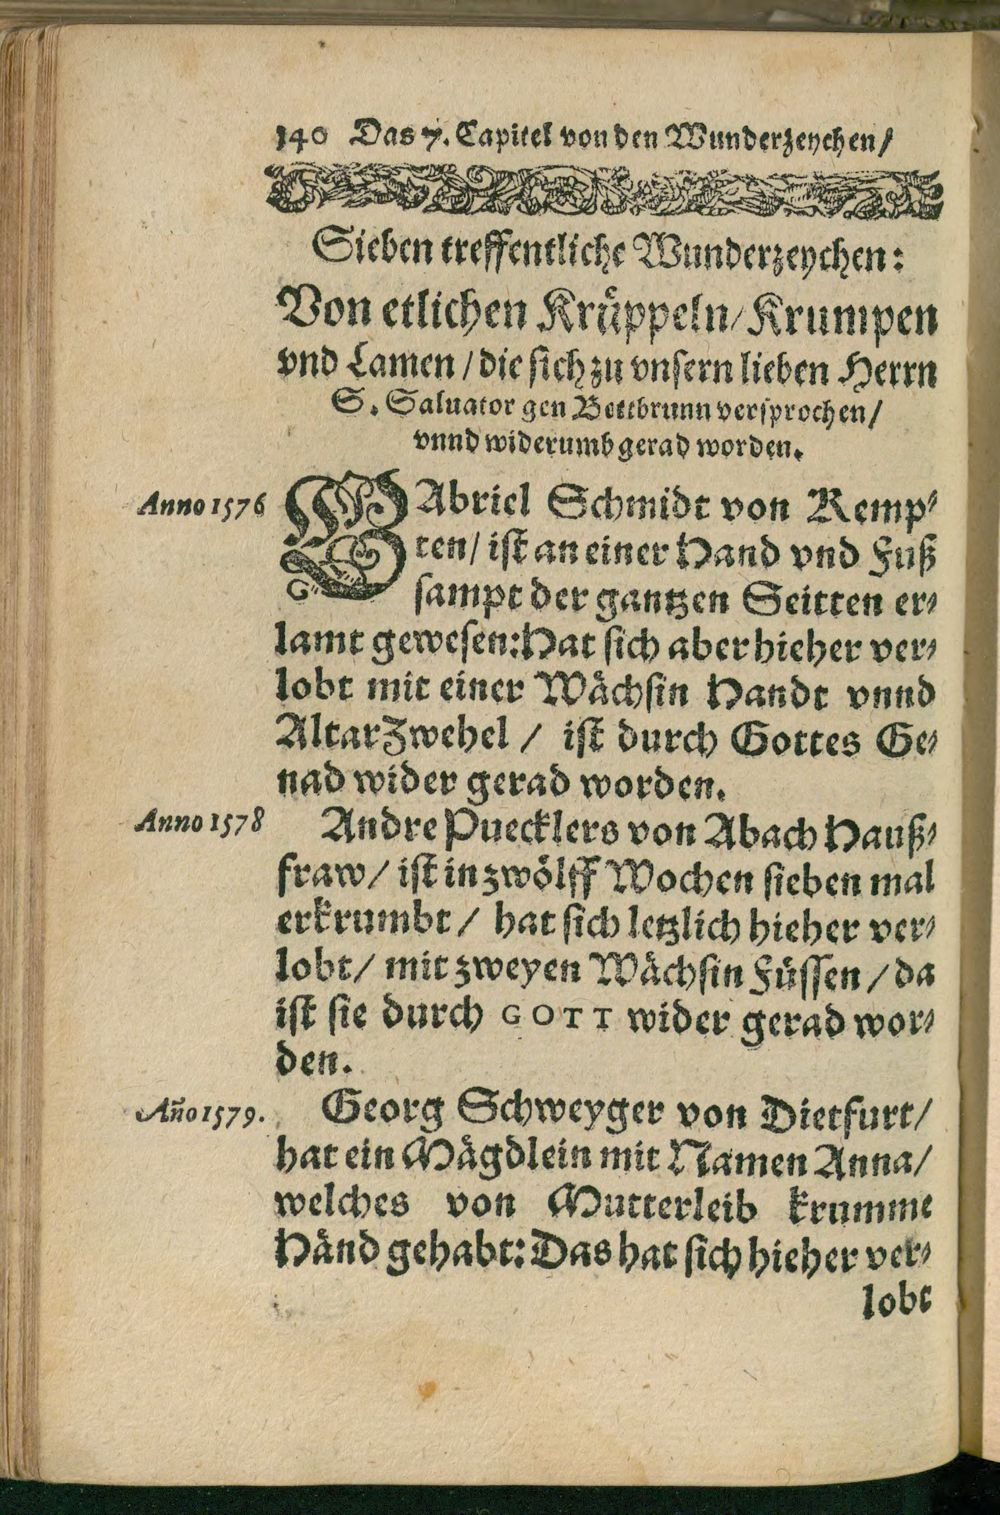 140 Das 7. Capitel von den Wunderzeychen/
Sieben treffentliche Wunderzeychen:
Von etlichen Krüppeln/ Krumpen
vnd Lamen / die sich zu vnsern lieben Herrn
S. Saluator gen Bettbrunn versprochen/
vnnd widerumb gerad worden.
Anno 1576 GAbriel Schmidt von Kemp⸗
ten/ ist an einer Hand vnd Fuß
sampt der gantzen Seitten er⸗
lamt gewesen: Hat sich aber hieher ver⸗
lobt mit einer Wächsin Handt vnnd
AltarZwehel / ist durch Gottes Ge⸗
nad wider gerad worden.
Anno 1578 Andre Puecklers von Abach Hauß⸗
fraw/ ist in zwölff Wochen sieben mal
erkrumbt / hat sich letzlich hieher ver⸗
lobt/ mit zweyen Wächsin Füssen / da
ist sie durch GOTT wider gerad wor⸗
den.
Año 1579. Georg Schweyger von Dietfurt/
hat ein Mägdlein mit Namen Anna/
welches von Mutterleib krumme
Händ gehabt: Das hat sich hieher ver⸗
lobt